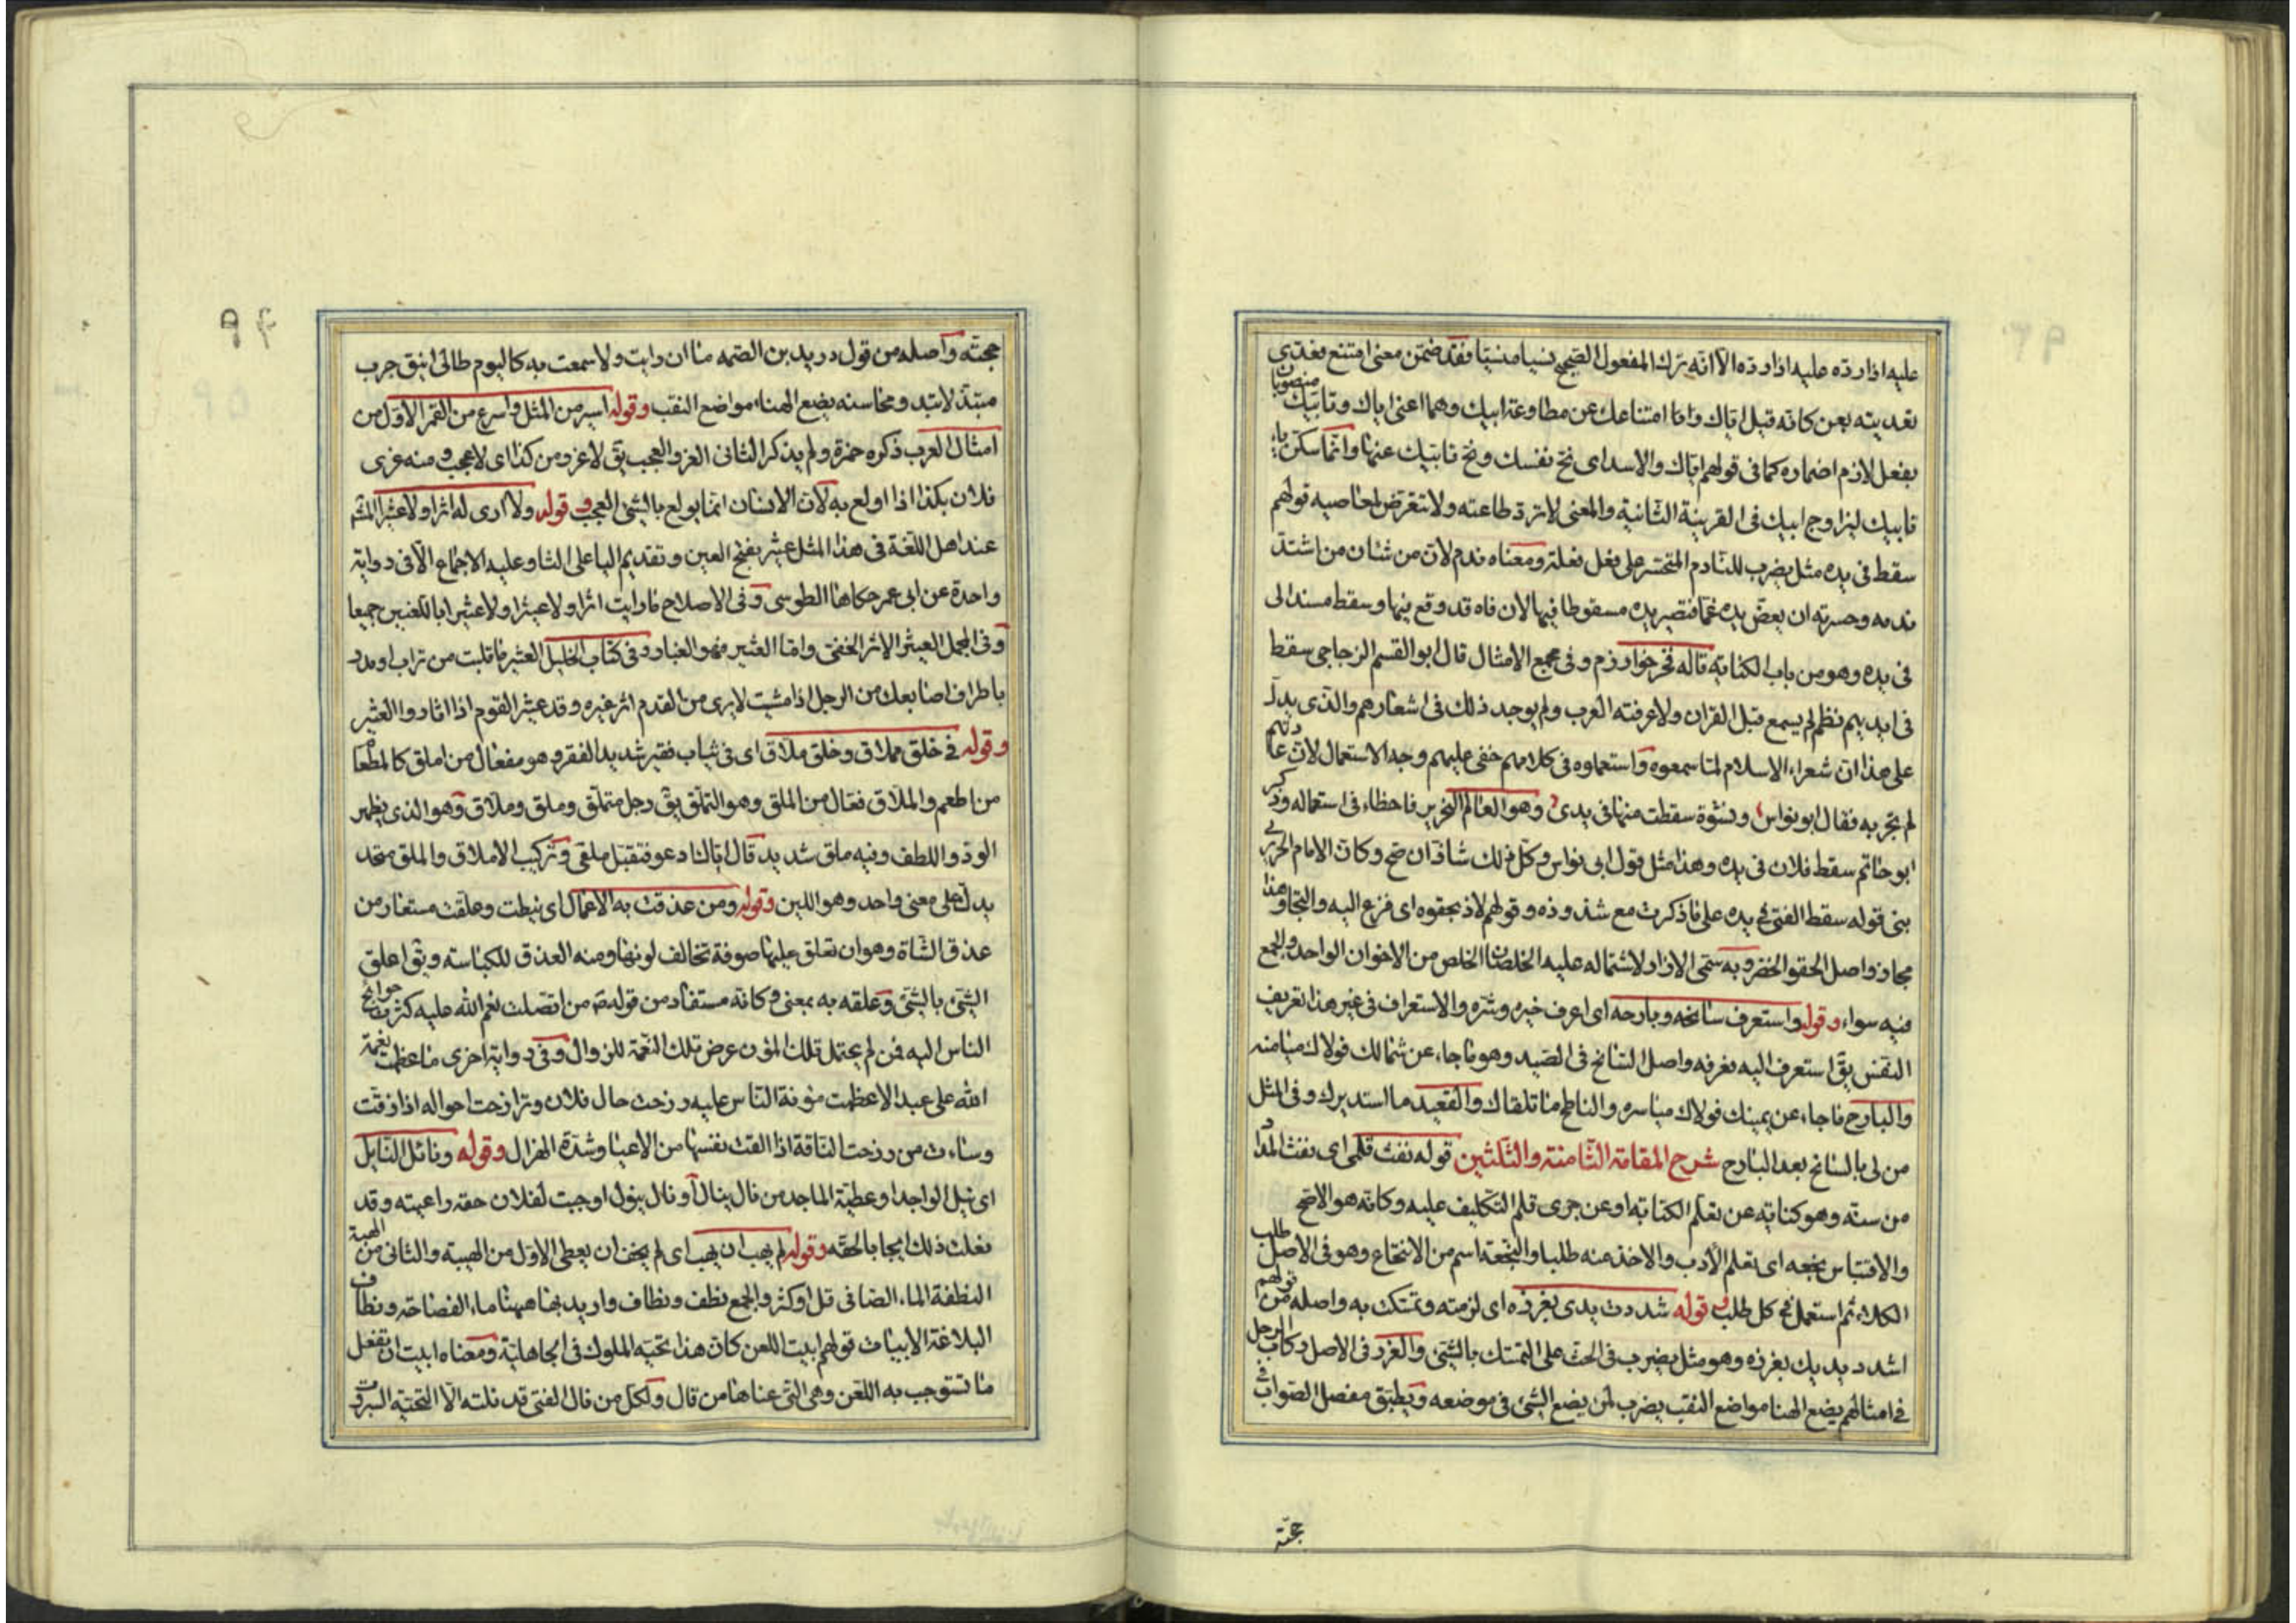 عليه اذا رده عليه اذا رده الا انه ترك المفعول الصحيح نسيا منسيا فقد ضمن معنى امتنع فعدى
تعديته بعن كانه قيل اياك واما امتناعك عن مطاوعة ابيك وهما اعنى اياك وتابيك منصوبان
بفعل لازم اضماره كما فى قولهم اياك والاسد اى نح نفسك ونح تابيك عنها وانما سكن ياء
تابيك ليزاوج ابيك فى القرينة الثانية والمعنى لا ترد طاعته ولا تتعرض لمعاصيه قولهم
سقط فى يده مثل يضرب للنادم المتحسر على فعل فعلته ومعناه ندم لان من شان من اشتد
ندمه وحسرته ان يعض يده غما فتصير يده مسقوطا فيها لان فاه قد وقع فيها وسقط مسند الى
فى يده وهو من باب الكناية قاله فخر خوارزم وفى مجمع الامثال قال ابو القسم الزجاجى سقط
فى ايديهم نظم لم يسمع قبل القران ولا عرفته العرب ولم يوجد ذلك فى اشعارهم والذى يدل
على هذا ان شعراء الاسلام لما سمعوه واستعملوه فى كلامهم خفى عليهم وجه الاستعمال لان عادتهم
لم تجر به فقال ابو نواس ونشوة سقطت منها فى يدى وهو العالم النحرير فاخطاء فى استعماله وذكر
ابو حاتم سقط فلان فى يده وهذا مثل قول ابى نواس وكل ذلك شاذ ان صح وكان الامام الحريرى
بنى قوله سقط الفتى فى يده على ما ذكرت مع شذوذه وقولهم لاذ بحقوه اى فزع اليه والتجا وهذا
مجاز واصل الحقو الخصر وبه سمى الازار لاشتماله عليه الخلصان الخالص من الاخوان الواحد والجمع
فيه سواء وقوله واستعرف سانحه وبارحه اى اعرف خيره وشره والاستعراف فى غير هذا تعريف
النفس يق استعرف اليه فعرفه واصل السانح فى الصيد وهو ما جاء عن شمالك فولاك ميامنه
والبارح ما جاء عن يمينك فولاك مياسره والناطح ما تلقاك والقعيد ما استدبرك وفى المثل
من لى بالسانح بعد البارح شرح المقامة الثامنة والثلثين قوله نفث قلمى اى نفث المداد
من سنه وهو كناية عن تعلم الكتابة او عن جرى قلم التكليف عليه وكانه هو الاصح
والاقتباس نجعه اى تعلم الادب والاخذ عنه طلبا والنجعة اسم من الانتجاع وهو فى الاصل طلب
الكلاء ثم استعمل فى كل طلب وقوله شددت يدى بغرزه اى لزمته وتمسكت به واصله من قولهم
اشدد يديك بغرزه وهو مثل يضرب فى الحث على التمسك بالشئ والغرز فى الاصل ركاب الرحل
فى امثالهم يضع الهنا مواضع النقب يضرب لمن يضع الشئ فى موضعه ويطبق مفصل الصواب فى
حجته
حجته واصله من قول دريد بن الصمه ما ان رايت ولا سمعت به كاليوم طالى اينق جرب
متبذلا تبدو محاسنه يضع الهناء مواضع النقب وقوله اسير من المثل واسرع من القمر الاول من
امثال العرب ذكره حمزة ولم يذكر الثانى الغرو العجب يق لا غرو من كذا اى لا عجب ومنه غرى
فلان بكذا اذا اولع به لان الانسان انما يولع بالشئ العجب وقوله ولا ارى له اثرا ولا عثيرا المثبت
عند اهل اللغة فى هذا المثل عيثر بفتح العين وتقديم اليا على الثا وعليه الاجماع الا فى رواية
واحدة عن ابى عمر حكاها الطوسى وفى الاصلاح ما رايت اثرا ولا عيثرا ولا عثيرا باللغتين جميعا
وفى المجمل العيثر الاثر الخفى واما العثير فهو الغبار وفى كتاب الخليل العثير ما قلبت من تراب او مدر
باطراف اصابعك من الرجل اذا مشيت لا يرى من القدم اثر غيره وقد عيثر القوم اذا اثاروا العثير
وقوله فى خلق مملاق وخلق ملاق اى فى ثياب فقير شديد الفقر وهو مفعال من املق كالمطعام
من اطعم والملاق فعال من الملق وهو التملق يق رجل متملق وملق وملاق وهو الذى يظهر
الود واللطف وفيه ملق شديد قال اياك ادعو فتقبل ملقى وتركيب الاملاق والملق متحد
يدل على معنى واحد وهو اللين وقوله ومن عذقت به الاعمال اى نيطت وعلقت مستعار من
عذق الشاة وهو ان تعلق عليها صوفة تخالف لونها ومنه العذق للكباسته ويق اعلق
الشئ بالشئ وعلقه به بمعنى وكانه مستفاد من قوله ص من اتصلت نعم الله عليه كثرت حوائج
الناس اليه فمن لم يحتمل تلك المؤن عرض تلك النعمة للزوال وفى رواية اخرى ما عظمت نعمة
الله على عبد الا عظمت مؤنة الناس عليه ورزحت حال فلان وترازحت احواله اذا رقت
وساءت من رزحت الناقة اذا القت نفسها من الاعيا وشدة الهزال وقوله ونائل النايل
اى نيل الواجد او عطية الماجد من نال ينال او نال ينول اوجبت لفلان حقه راعيته وقد
فعلت ذلك ايجابا لحقه وقوله لم يهب ان يهب اى لم يخف ان يعطى الاول من الهيبة والثانى من الهبة
النطفة الماء الصافى قل او كثر والجمع نطف ونطاف واريد بها ههنا ماء الفصاحة ونطاف
البلاغة الابيات قولهم ابيت اللعن كان هذا تحية الملوك فى الجاهلية ومعناه ابيت ان تفعل
ما تستوجب به اللعن وهى التى عناها من قال ولكل من نال الفتى قد نلته الا التحية السروت